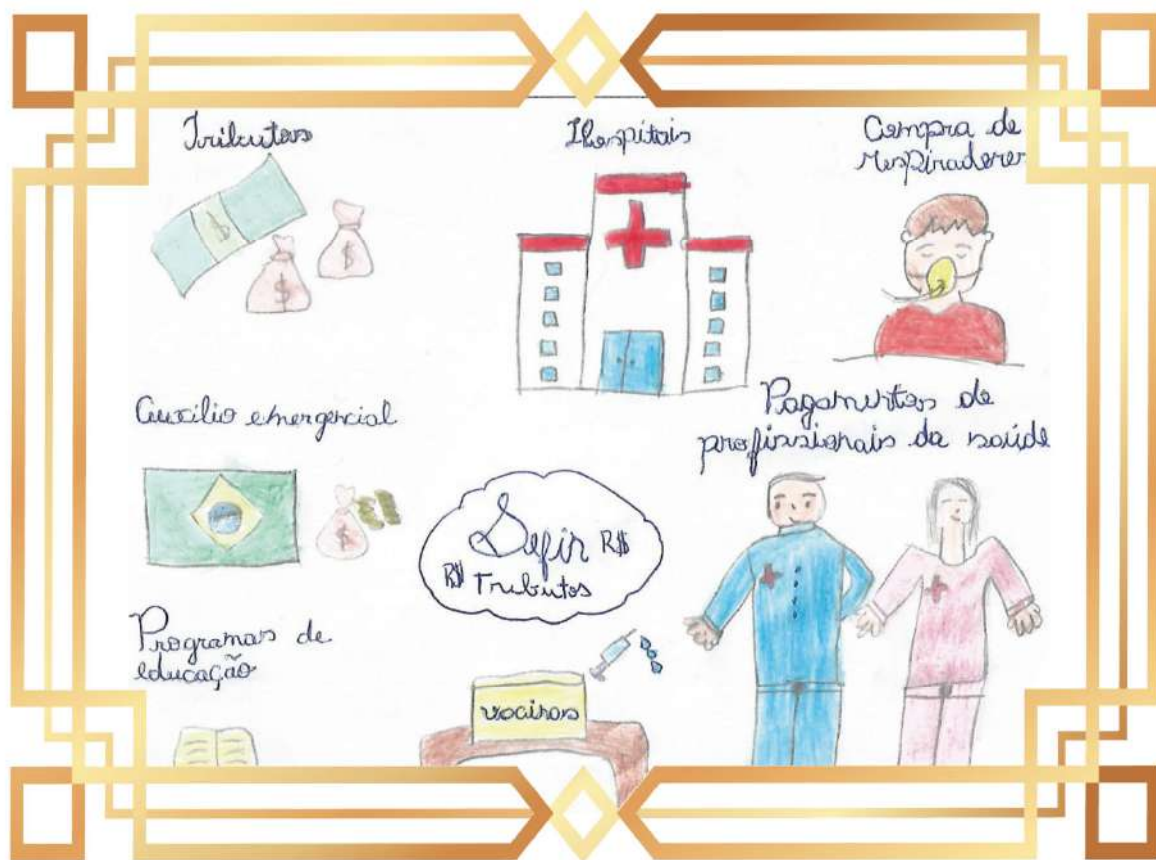 Tributos
Hospitais
Compra de
respiradores
$
$
$
Auxílio emergencial
Pagamentos de
profissionais da saúde
$
Sefin R$
R$ Tributos
Programas de
educação
vacinas